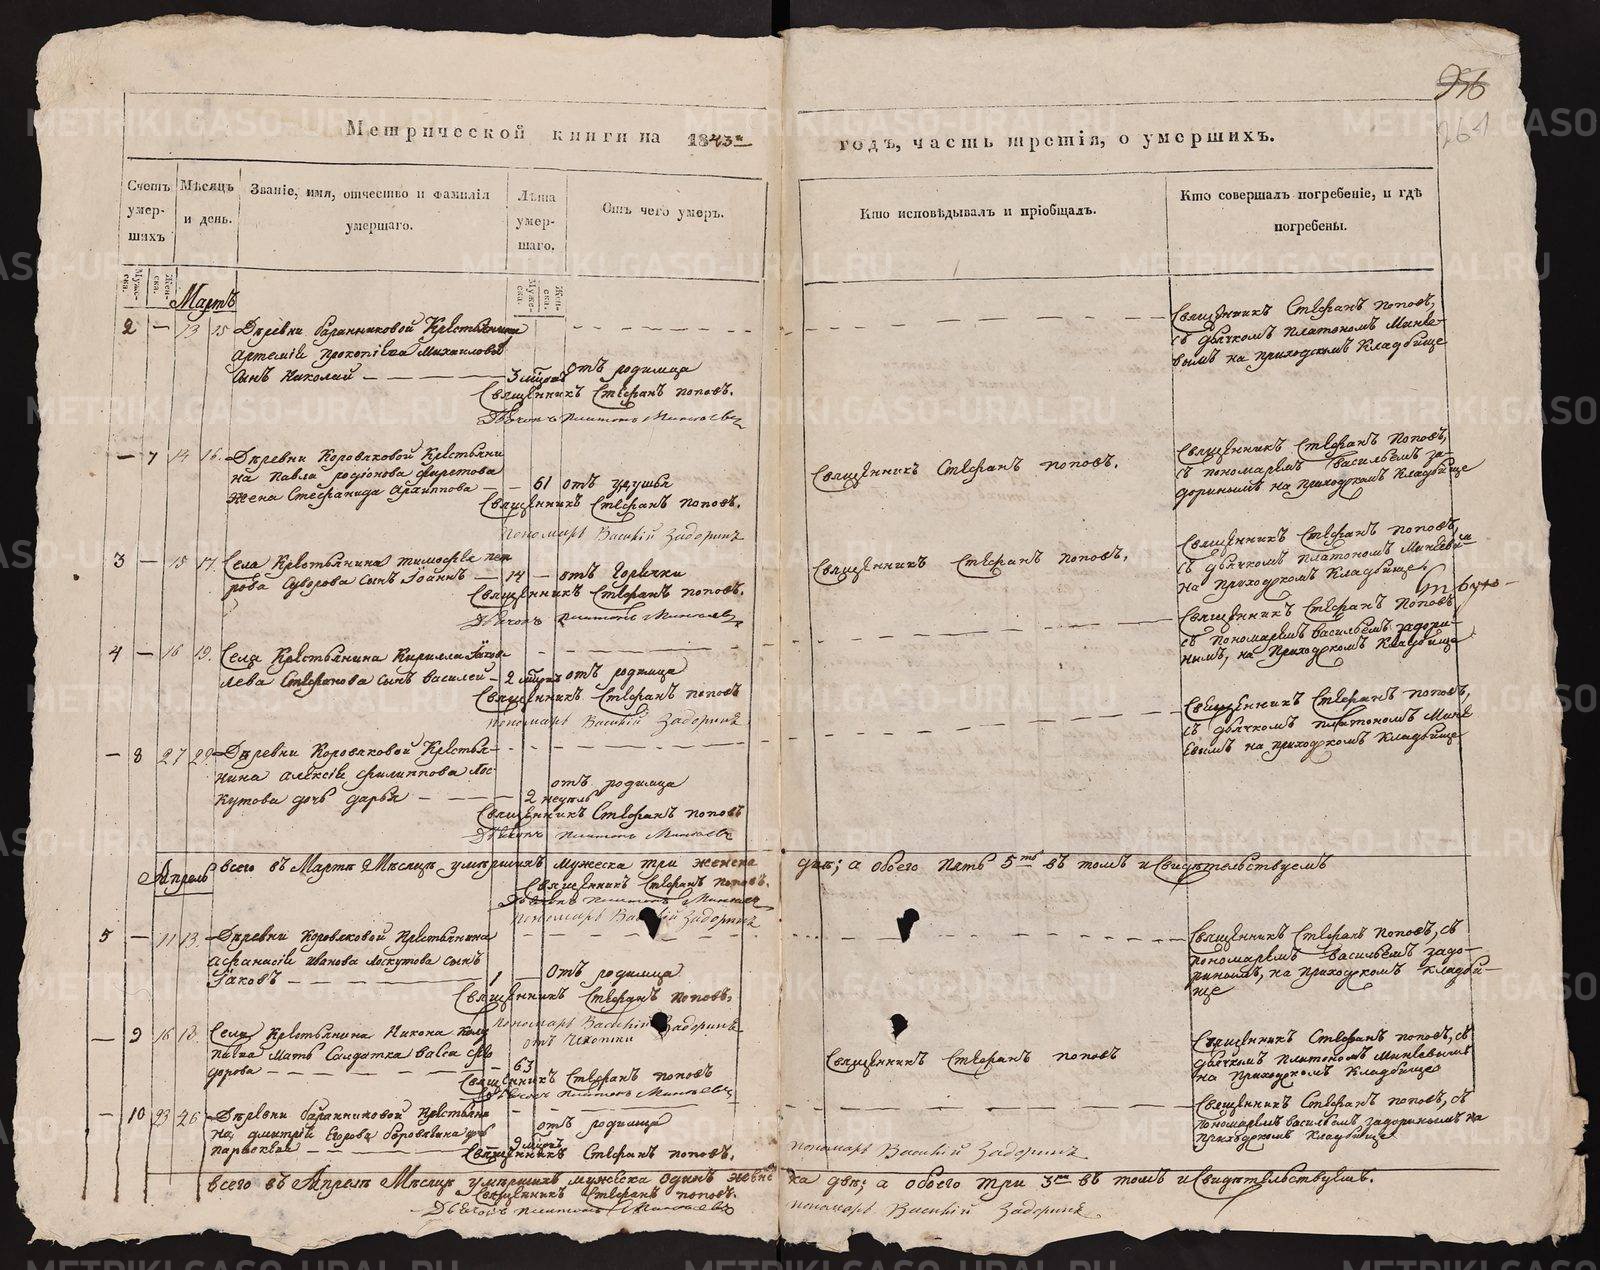 956
264
Метрической книги на 1843й годъ, часть третія, о умершихъ.
Счетъ умер-
шихъ
Мѣсяцъ
и день.
Званіе, имя, отчество и фамилія
умершаго.
Лѣта
умер-
шаго.
Отъ чего умеръ.
Кто исповѣдывалъ и пріобщалъ.
Кто совершалъ погребеніе, и гдѣ
погребены.
Муже-
ска.
Жен-
ска.
Муже-
ска.
Жен-
ска.
Мартъ
2 — 13 15 Деревни баранниковой Крестьянина
Артемія прокопіева Михайлова
сынъ Николай — 3 отъ родимца
Священникъ Стефанъ поповъ.
Дьячекъ платонъ Минѣевъ
Священникъ Стефанъ поповъ,
съ дьячкомъ платономъ Минѣе-
вымъ на приходскомъ Кладбище
— 7 14 16. Деревни Коровяковой Крестьяни
на Павла родіонова Фирстова
жена Стефанида Архиппова — 61 отъ удушья
Священникъ Стефанъ поповъ.
пономарь Василій Задоринъ
Священникъ Стефанъ поповъ.
Священникъ Стефанъ поповъ,
съ пономаремъ Васильемъ за-
доринымъ на приходскомъ Кладбище
3 — 15 17. Села Крестьянина тимофея пет
рова Суворова сынъ Іоаннъ — 14 — отъ Горячки
Священникъ Стефанъ поповъ.
Дьячекъ платонъ Минѣевъ
Священникъ Стефанъ поповъ.
Священникъ Стефанъ поповъ,
съ дьячкомъ платономъ Минѣевым
на приходскомъ Кладбище.
4 — 16 19. Села Крестьянина Кирилла Яков
лева Стефанова сынъ василей — 2 отъ родимца
Священникъ Стефанъ поповъ
пономарь Василій Задоринъ
Священникъ Стефанъ поповъ
съ пономаремъ васильемъ задори-
нымъ, на приходскомъ Кладбище
— 8 27 29 Деревни Коровяковой Крестья-
нина алексія филиппова Лос-
кутова дочь дарья — 2 недѣль отъ родимца
Священникъ Стефанъ поповъ
Дьячекъ платонъ Минѣевъ
Священникъ Стефанъ поповъ,
съ дьячкомъ платономъ Минѣ
евымъ на приходскомъ Кладбище
всего въ Мартѣ Мѣсяцѣ умершихъ мужеска три женска двѣ; а обоего пять 5ть въ томъ и свидѣтельствуемъ
Священникъ Стефанъ поповъ.
Дьячекъ платонъ Минѣевъ
пономарь Василій Задоринъ
Апрель
5 — 11 13 Деревни Коровяковой Крестьянина
афанасія иванова лоскутова сынъ
Іаковъ — 1 — отъ родимца
Священникъ Стефанъ поповъ,
пономарь Василій Задоринъ
Священникъ Стефанъ поповъ, съ
пономаремъ Васильемъ задо-
ринымъ, на приходскомъ кладби-
ще
— 9 16 18. Села Крестьянина Никона
мать Солдатка васса
дорова — 63 отъ чехотки
Священникъ Стефанъ поповъ
Дьячекъ платонъ Минѣевъ
Священникъ Стефанъ поповъ
Священникъ Стефанъ поповъ, съ
дьячкомъ платономъ Минѣевымъ
на приходскомъ Кладбище
— 10 23 26 Деревни баранниковой Крестьяни
на, дмитрія Егорова боровягина дочь
параскева — отъ родимца
Священникъ Стефанъ поповъ.
пономарь Василій Задоринъ
Священникъ Стефанъ поповъ, съ
пономаремъ васильемъ задоринымъ на
приходскомъ Кладбище
всего въ Апрелѣ Мѣсяцѣ умершихъ мужеска одинъ женска двѣ; а обоего три 3ри въ томъ и свидѣтельствуемъ.
Священникъ Стефанъ поповъ.
Дьячекъ платонъ Минѣевъ
пономарь Василій Задоринъ
METRIKI.GASO-URAL.RU